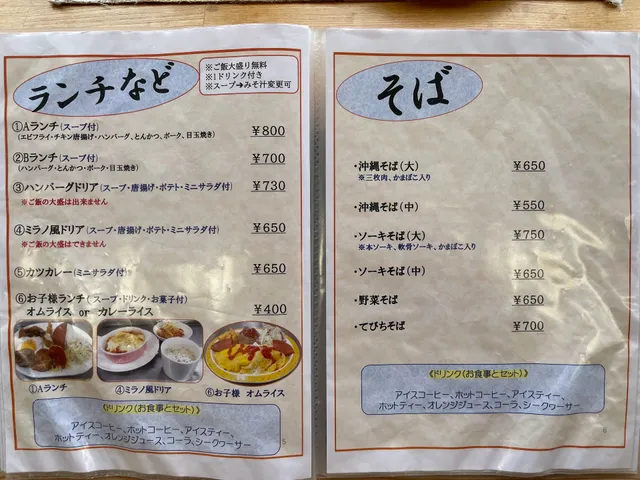 ランチなど
※ご飯大盛り無料
※1ドリンク付き
※スープ➔みそ汁変更可
①Aランチ(スープ付) ￥800
(エビフライ・チキン唐揚げ・ハンバーグ、とんかつ、ポーク、目玉焼き)
②Bランチ(スープ付) ￥700
(ハンバーグ・とんかつ・ポーク・目玉焼き)
③ハンバーグドリア(スープ・唐揚げ・ポテト・ミニサラダ付) ￥730
※ご飯の大盛は出来ません
④ミラノ風ドリア(スープ・唐揚げ・ポテト・ミニサラダ付) ￥650
※ご飯の大盛はできません
⑤カツカレー(ミニサラダ付) ￥650
⑥お子様ランチ(スープ・ドリンク・お菓子付) ￥400
オムライス or カレーライス
①Aランチ ④ミラノ風ドリア ⑥お子様 オムライス
《ドリンク(お食事とセット)》
アイスコーヒー、ホットコーヒー、アイスティー、
ホットティー、オレンジジュース、コーラ、シークヮーサー
5
そば
・沖縄そば(大) ￥650
※三枚肉、かまぼこ入り
・沖縄そば(中) ￥550
・ソーキそば(大) ￥750
※本ソーキ、軟骨ソーキ、かまぼこ入り
・ソーキそば(中) ￥650
・野菜そば ￥650
・てびちそば ￥700
《ドリンク(お食事とセット)》
アイスコーヒー、ホットコーヒー、アイスティー、
ホットティー、オレンジジュース、コーラ、シークヮーサー
6